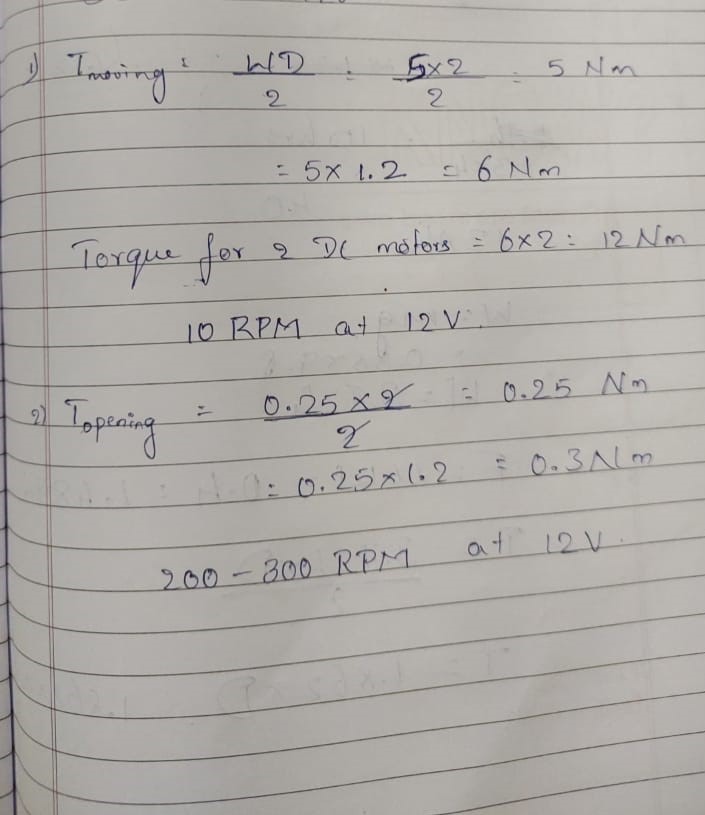 1) Tmoving : WD/2 : 5x2/2 = 5 Nm
= 5 x 1.2 = 6 Nm
Torque for 2 DC motors = 6x2 = 12 Nm
10 RPM at 12V.
2) Topening = 0.25 x 2/2 = 0.25 Nm
= 0.25 x 1.2 = 0.3 Nm
200 - 300 RPM at 12V.